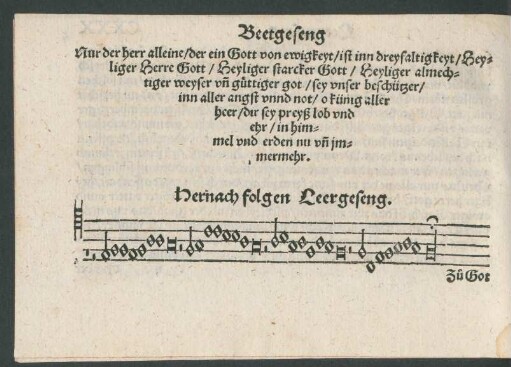 Beetgeseng
Nur der herr alleine/der ein Gott von ewigkeyt/ist inn dreyfaltigkeyt/Hey=
liger Herre Gott / Heyliger starcker Gott / Heyliger almech=
tiger weyser vñ güttiger got /sey vnser beschützer/
inn aller angst vnnd not/ o künig aller
heer/dir sey preyß lob vnd
ehr/ in him=
mel vnd erden nu vñ jm=
mermehr.
Hernach folgen Leergeseng.
Zů Got